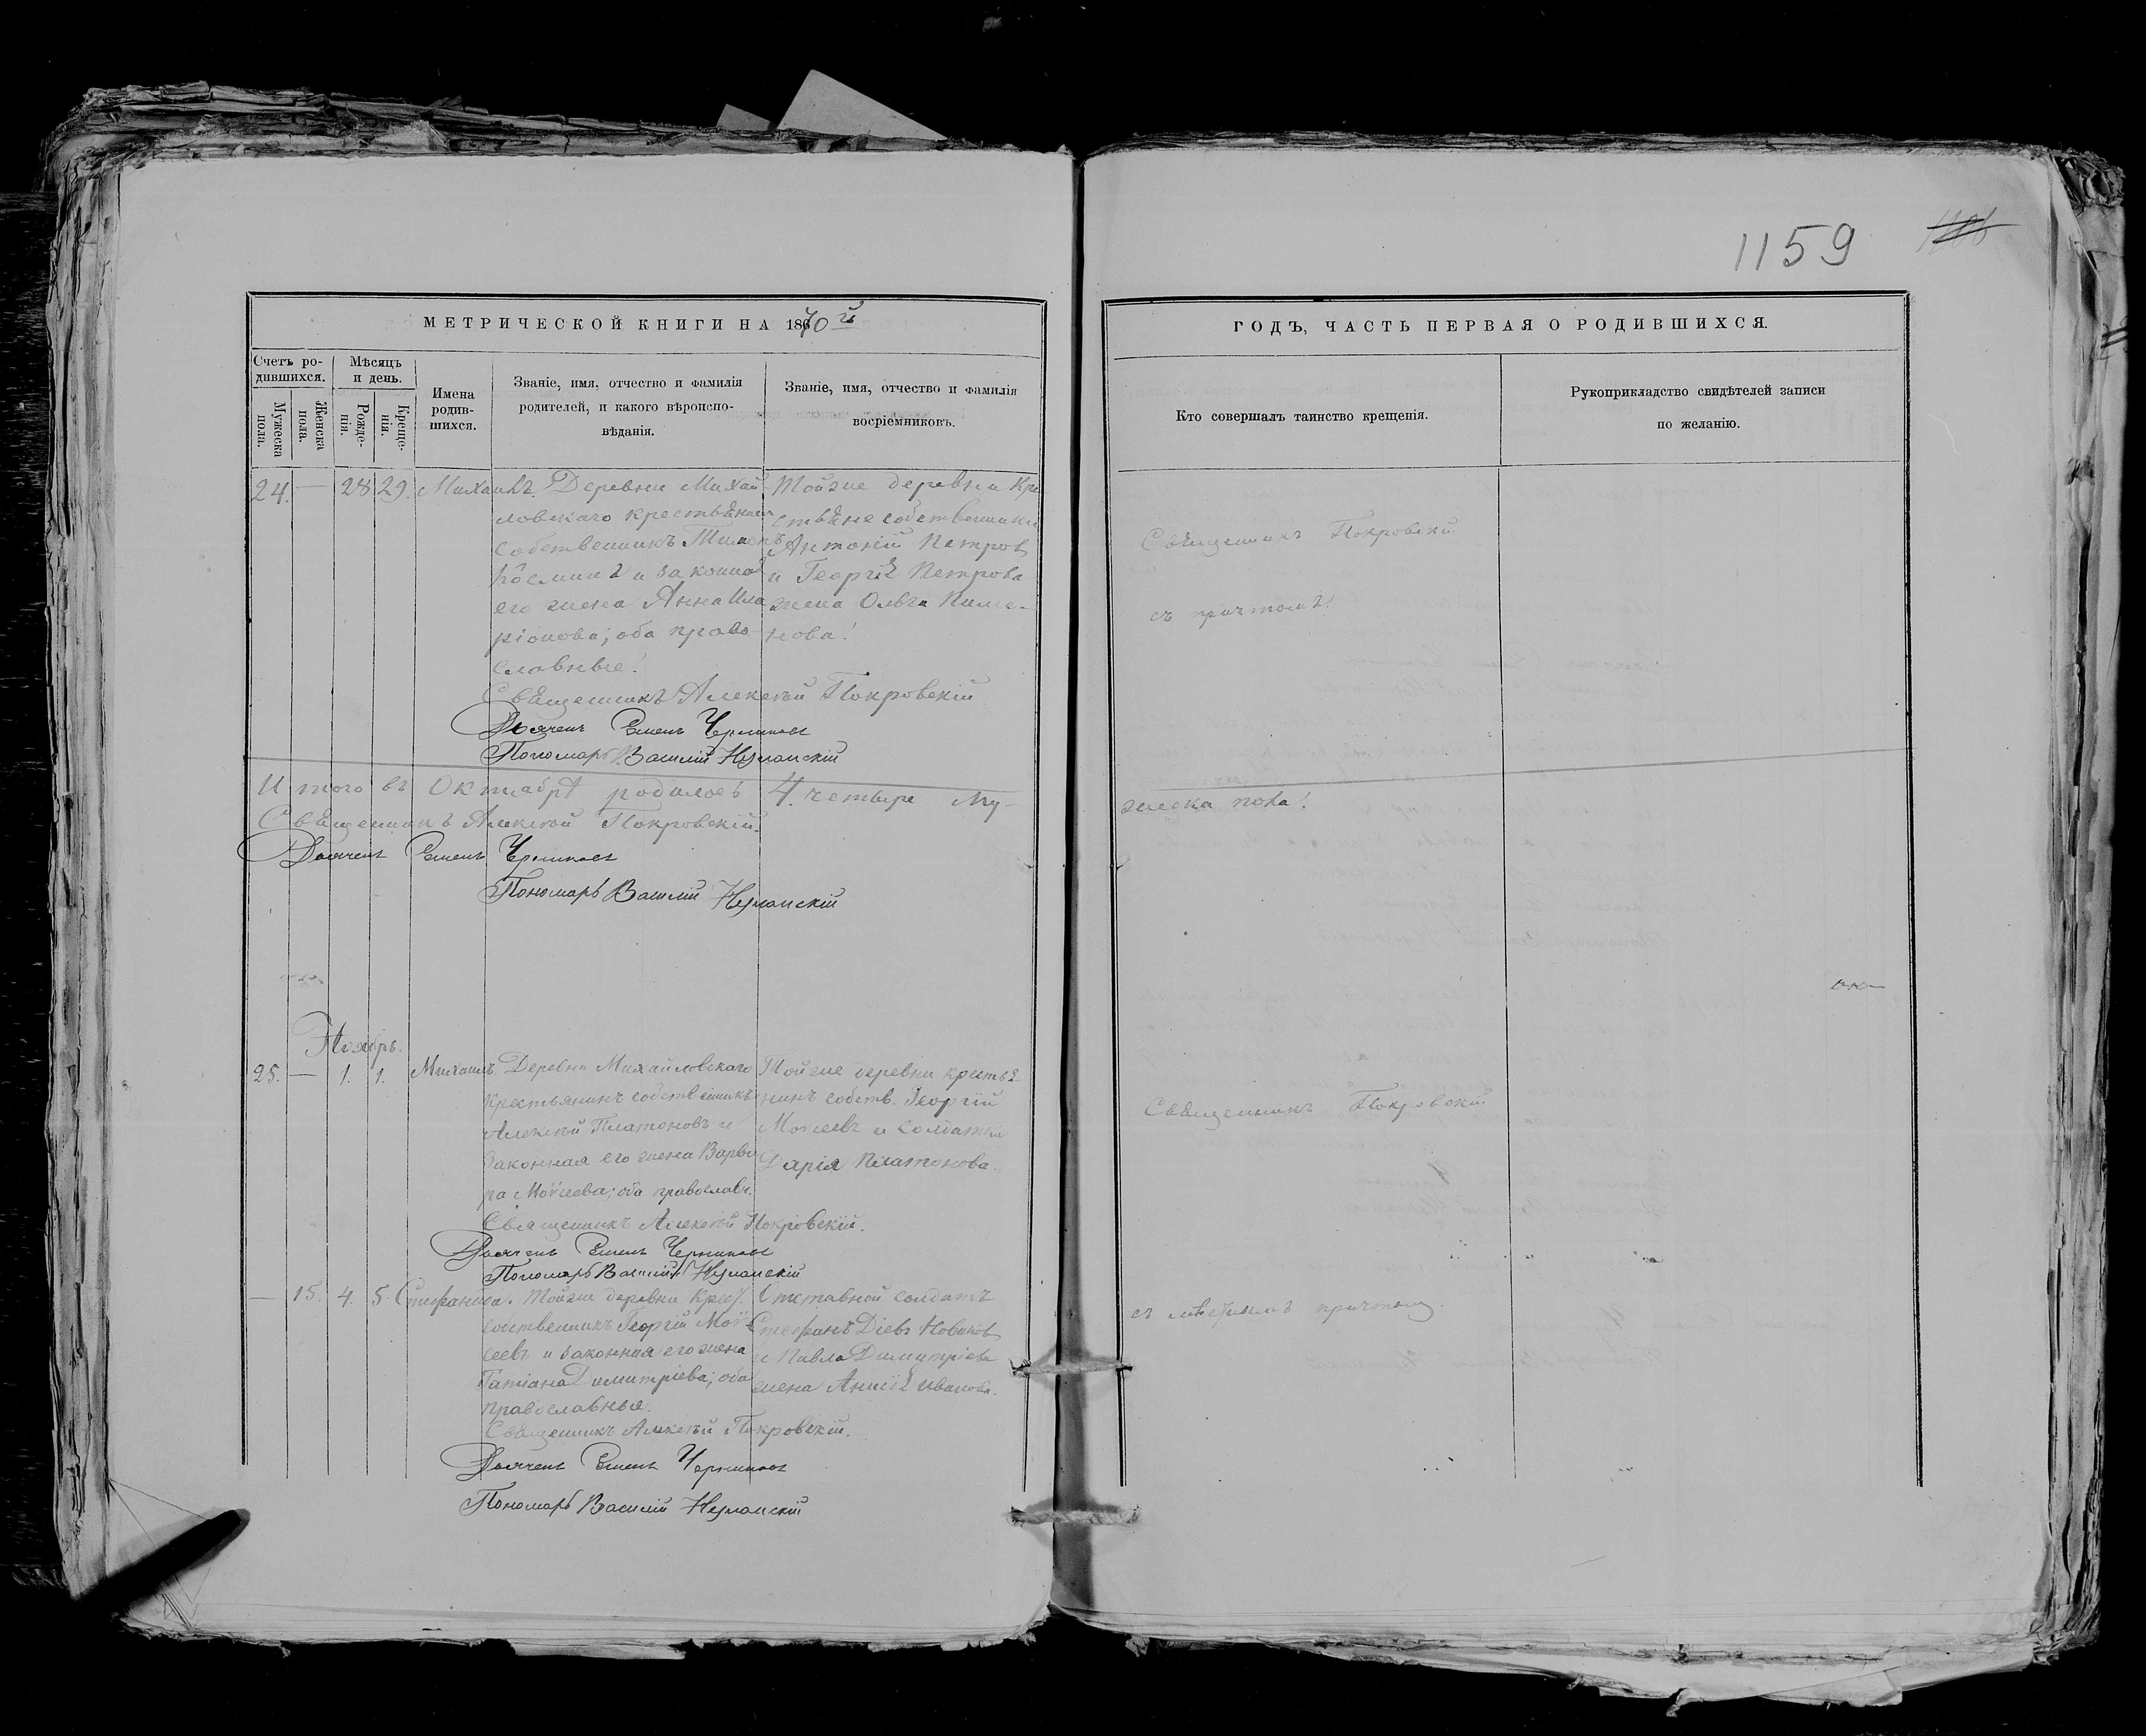 1159
МЕТРИЧЕСКОЙ КНИГИ НА 1870й
ГОДЪ, ЧАСТЬ ПЕРВАЯ О РОДИВШИХСЯ.
Счетъ ро-
дившихся.
Мужеска
пола.
Женска
пола.
Мѣсяцъ
и день.
Рожде-
нія.
Креще-
нія.
Имена
родив-
шихся.
Званіе, имя, отчество и фамилія
родителей, и какого вѣроиспо-
вѣданія.
Званіе, имя, отчество и фамилія
воспріемниковъ.
Кто совершалъ таинство крещенія.
Рукоприкладство свидѣтелей записи
по желанію.
24. — 28 29. Михаилъ.
Деревни Михай-
ловскаго крестьянинъ
собственникъ
и законная
его жена Анна Ила-
ріонова; оба право-
славные.
Тойже деревни кре-
стьяне собственники
Антоній Петров
и Георгія Петрова
жена Ольга
нова.
Священникъ Покровскій
съ причтомъ.
Священникъ Алексѣй Покровскій
Дьячекъ Семенъ
Пономарь Василій
Итого въ Октябрѣ родилось 4. четыре му-
жеска пола.
Священникъ Алексѣй Покровскій.
Дьячекъ Семенъ
Пономарь Василій
Ноябрь.
25. — 1. 1. Михаилъ.
Деревни Михайловскаго
крестьянинъ собственникъ
Алексѣй Платоновъ и
законная его жена Варва-
ра Моѵсеева; оба православн.
Тойже деревни крестья-
нинъ собств. Георгій
Моѵсеевъ и солдатка
Дарія Платонова.
Священникъ Покровскій
Священникъ Алексѣй Покровскій.
Дьячекъ Семенъ
Пономарь Василій
— 15. 4. 5. Стефанида.
Тойже деревни Крест.
собственникъ Георгій Моѵ-
сеевъ и законная его жена
Татіана Димитріева; оба
православные.
Отставной солдатъ
Стефанъ Діевъ Новиков
и Павла Димитріева
жена Анисія Иванова.
съ мѣстнымъ причтомъ.
Священникъ Алексѣй Покровскій.
Дьячекъ Семенъ
Пономарь Василій